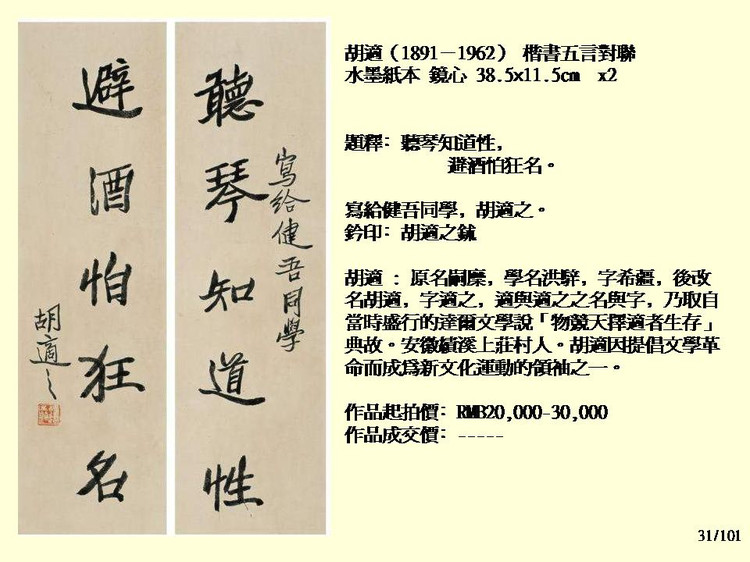 聽琴知道性
寫給健吾同學
避酒怕狂名
胡適之
胡適（1891－1962） 楷書五言對聯
水墨紙本 鏡心 38.5×11.5cm x2
題釋: 聽琴知道性,
避酒怕狂名。
寫給健吾同學, 胡適之。
鈐印: 胡適之鉥
胡適 : 原名嗣穈, 學名洪騂, 字希疆, 後改
名胡適, 字適之, 適與適之之名與字, 乃取自
當時盛行的達爾文學說「物競天擇適者生存」
典故。安徽績溪上莊村人。胡適因提倡文學革
命而成爲新文化運動的領袖之一。
作品起拍價: RMB20,000-30,000
作品成交價: -----
31/101